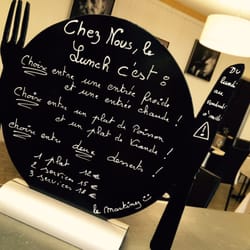 Chez Nous, le
Lunch c'est :
Choix entre une entrée froide
et une entrée chaude !
Choix entre un plat de Poisson
et un plat de Viande !
choix entre deux desserts !
1 plat 12 €
2 services 15 €
3 services 18 €
le Martiney
Du
lundi
au
vendredi
midi